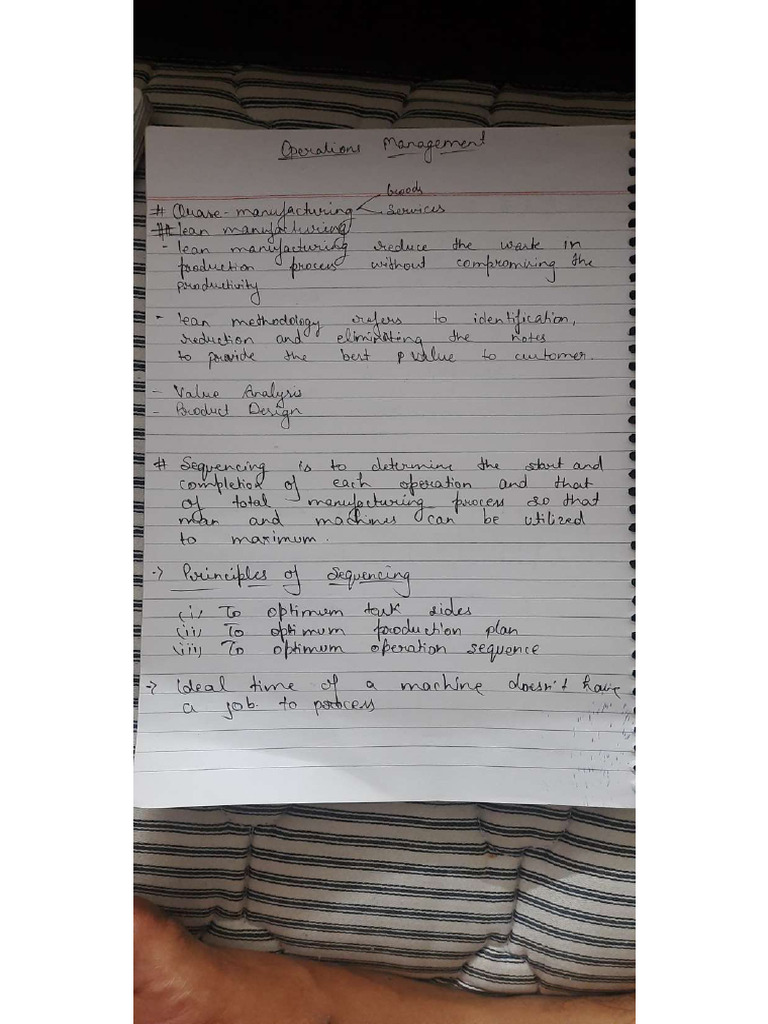 Operations Management
Goods
# Quase-manufacturing
Services
## lean manufacturing
- lean manufacturing reduce the waste in
production process without compromising the
productivity
- lean methodology refers to identification,
reduction and eliminating the notes
to provide the best p value to customer.
- Value Analysis
- Product Design
# Sequencing is to determine the start and
completion of each operation and that
of total manufacturing process so that
man and machines can be utilized
to maximum.
-> Principles of Sequencing
(i) To optimum task sides
(ii) To optimum production plan
(iii) To optimum operation sequence
-> Ideal time of a machine doesn't have
a job to process